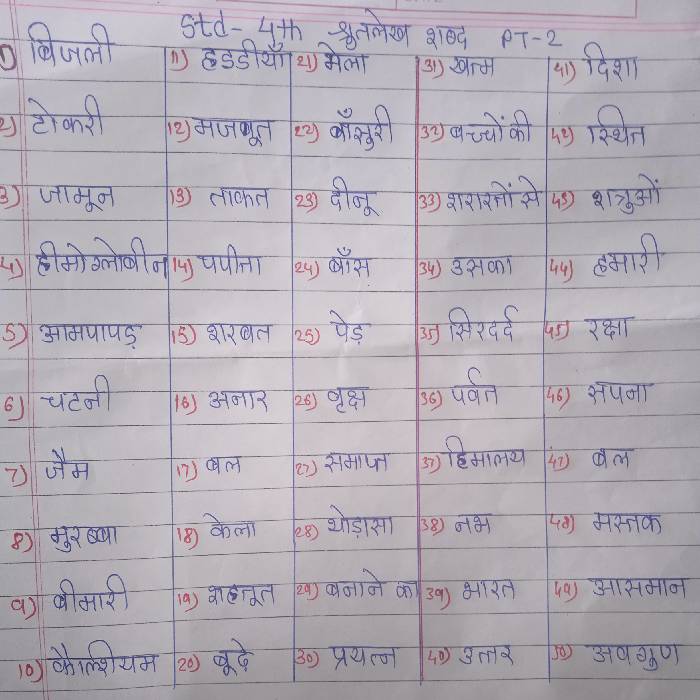 Std- 4th श्रुतलेख शब्द PT-2
1) बिजली 11) हडडीयाँ 21) मेला 31) खत्म 41) दिशा
2) टोकरी 12) मजबूत 22) बाँसुरी 32) बच्चों की 42) स्थित
3) जामून 13) ताकत 23) दीनू 33) शरारतों से 43) शत्रुओं
4) हीमोग्लोबीन 14) पपीता 24) बाँस 34) उसका 44) हमारी
5) आमपापड़ 15) शरबत 25) पेड़ 35) सिरदर्द 45) रक्षा
6) चटनी 16) अनार 26) वृक्ष 36) पर्वत 46) सपना
7) जैम 17) बल 27) समाप्त 37) हिमालय 47) बल
8) मुरब्बा 18) केला 28) थोड़ासा 38) नभ 48) मस्तक
9) बीमारी 19) शहतूत 29) बनाने का 39) भारत 49) आसमान
10) कैल्शियम 20) बूदे 30) प्रयत्न 40) उत्तर 50) अवगुण